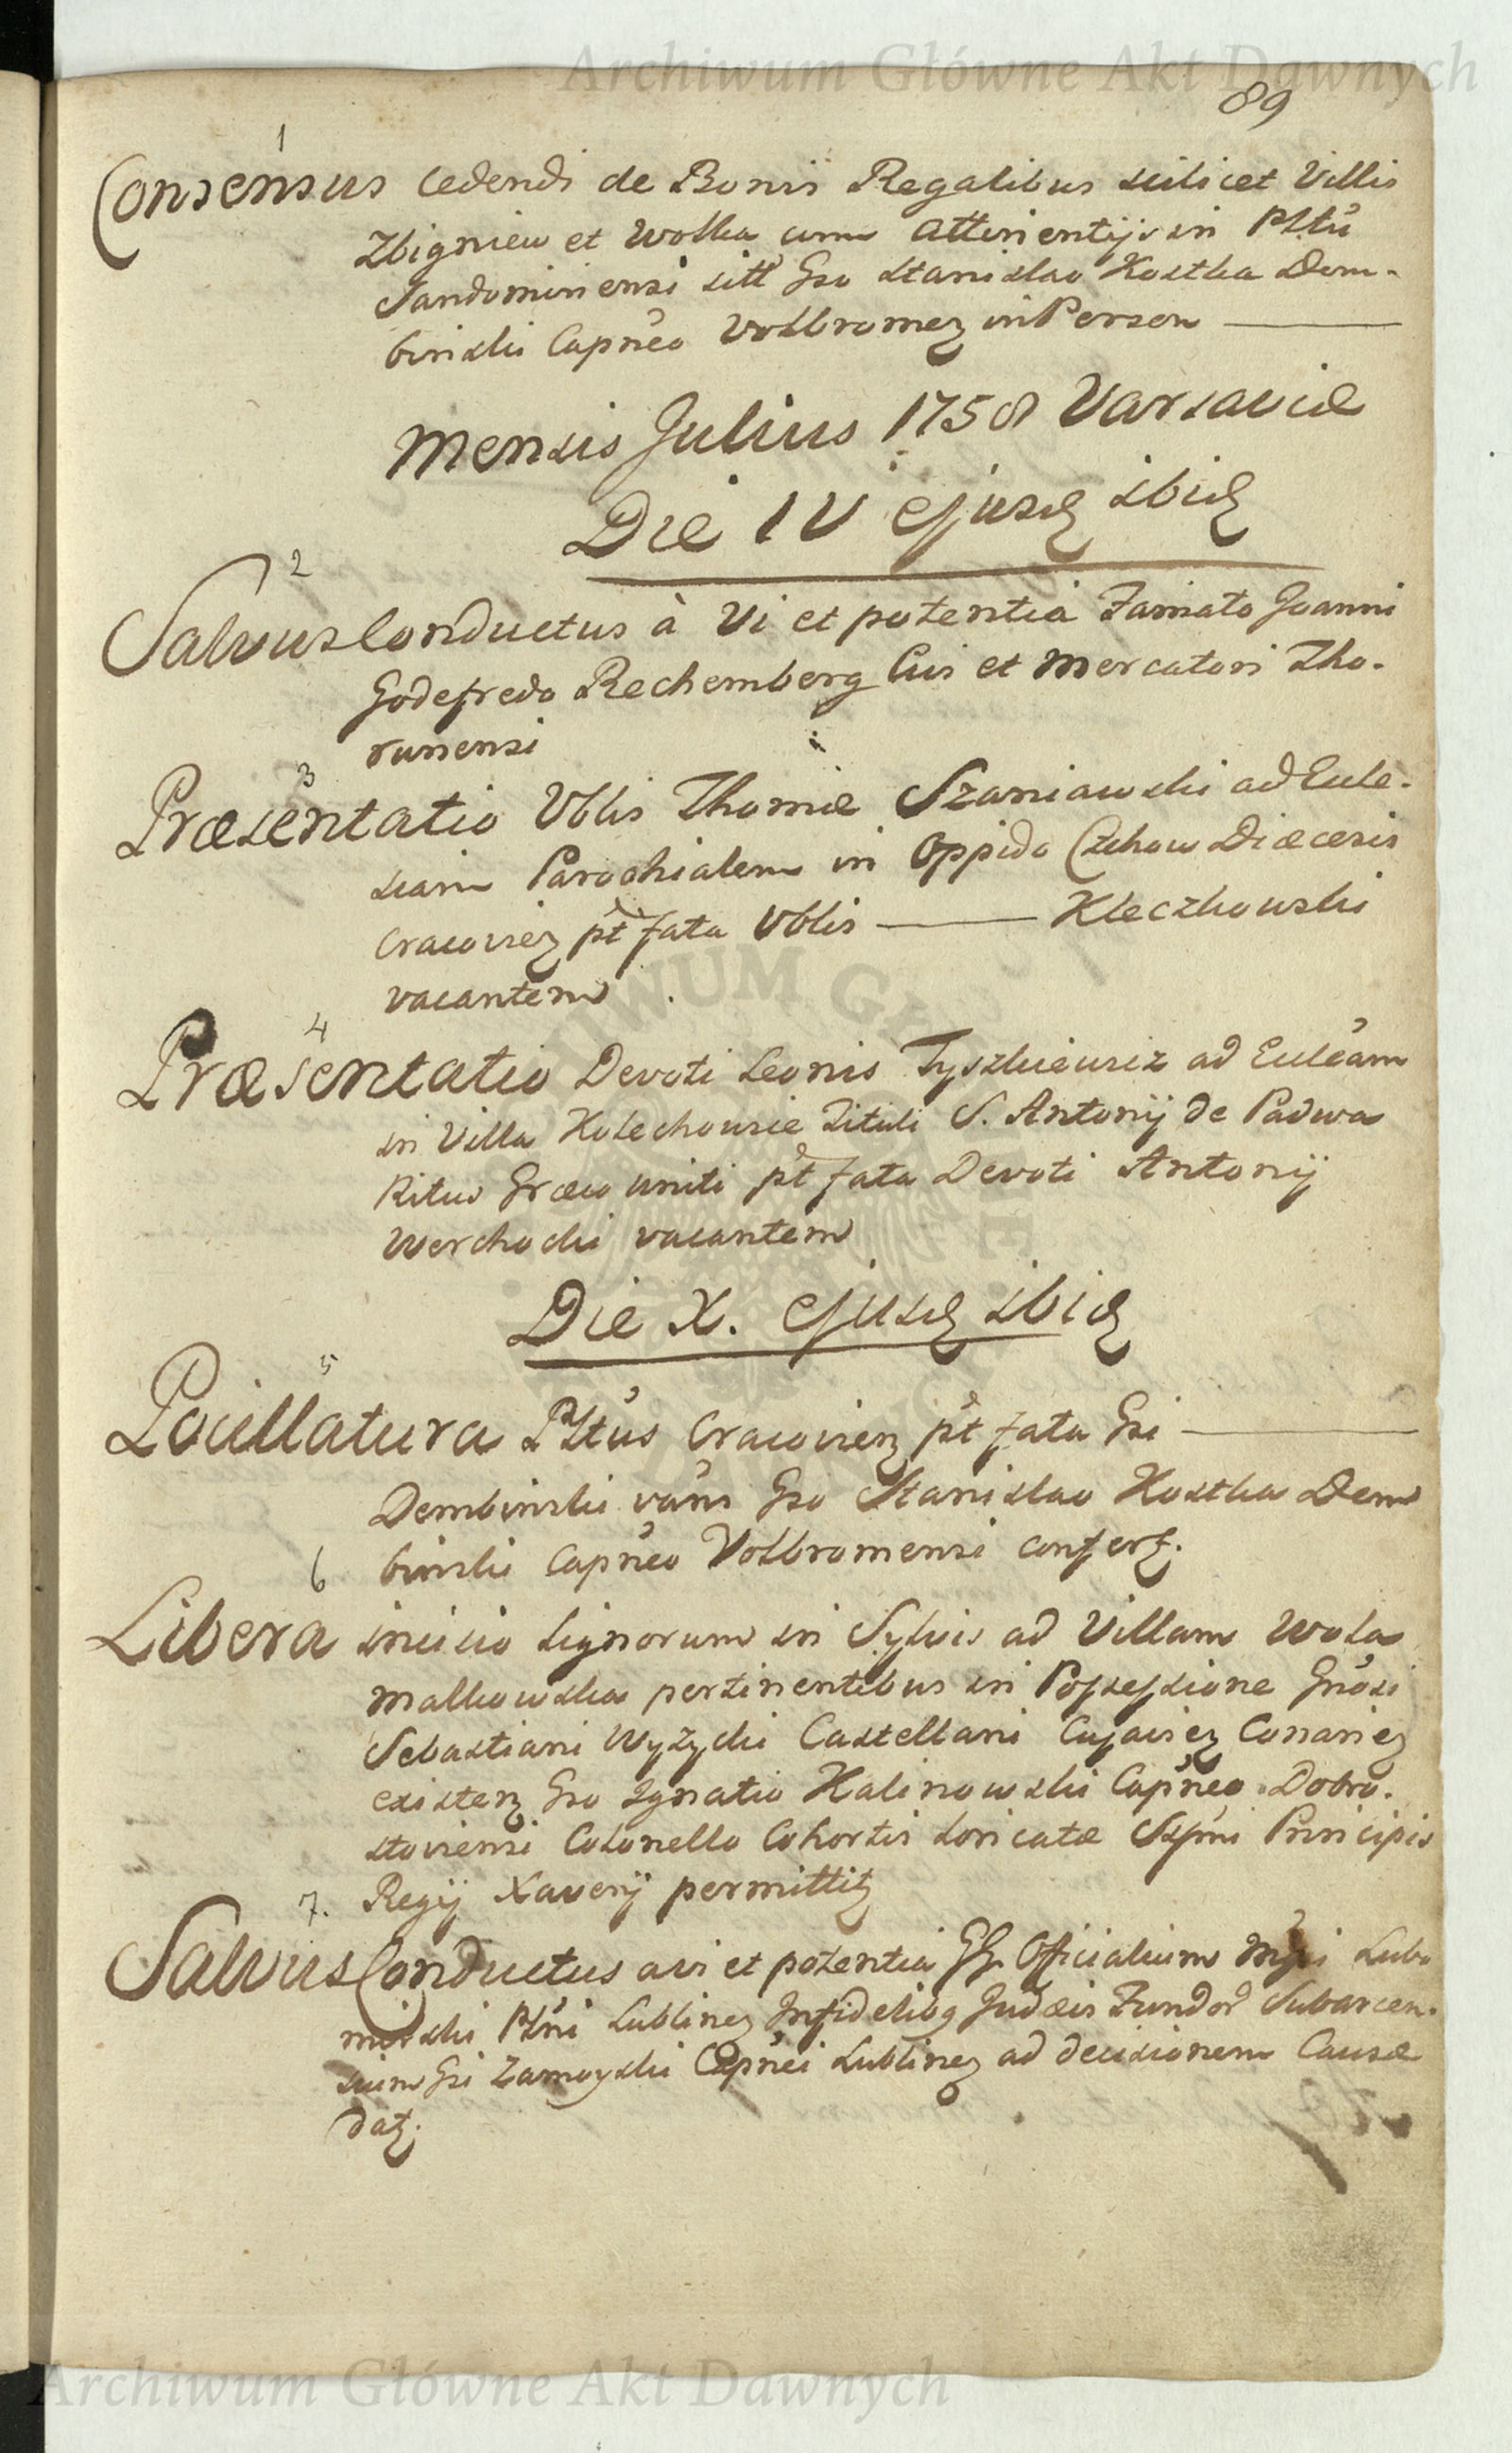 Archiwum Główne Akt Dawnych
89
1
Consensus cedendi de Bonis Regalibus scilicet Villis
Zbigniew et Wolka cum attinentijs in Pltu
Sandomiriensi sitt Gso Stanislao Kostka Dem-
binski Capneo Wolbromez in Person
Mensis Julius 1758 Varsaviæ
Die IV ejusd ibid
2
Salvus Conductus à Vi et potentia Famato Joanni
Godefredo Rechemberg Civi et Mercatori Tho-
runensi
3
Præsentatio Vblis Thomæ Szaniawski ad Eccle-
siam Parochialem in Oppido Czchow Diæcesis
Cracovien pt fata Vblis Kleczkowski
vacantem
4
Præsentatio Devoti Leonis Tyszkiewicz ad Eccleam
in Villa Kolechowice Tituli S. Antonij de Padwa
Ritus Græco uniti pt fata Devoti Antonij
Werchocki vacantem
Die X. ejusd ibid
5
Pocillatura Pltus Cracovien pt fata Gsi
Dembinski vans Gso Stanislao Kostka Dem
6 binski Capneo Wolbromensi confert.
Libera incisio Lignorum in Sylvis ad Villam Wola
Malkowska pertinentibus in Possessione Gnosi
Sebastiani Wyżycki Castellani Cujavien Conarien
existen Gso Ignatio Kalinowski Capneo Dobro-
stoviensi Colonello Cohortis Loricatæ Ssmi Principis
7. Regij Xaverij permittit
Salvus Conductus a vi et potentia GG. Officialium Mgci Lubo
mirski Pltni Lublinen Infidelibq Judæis Fundor Subarcen-
sium Gsi Zamoyski Capnei Lublinen ad decisionem Causæ
dat.
Archiwum Główne Akt Dawnych